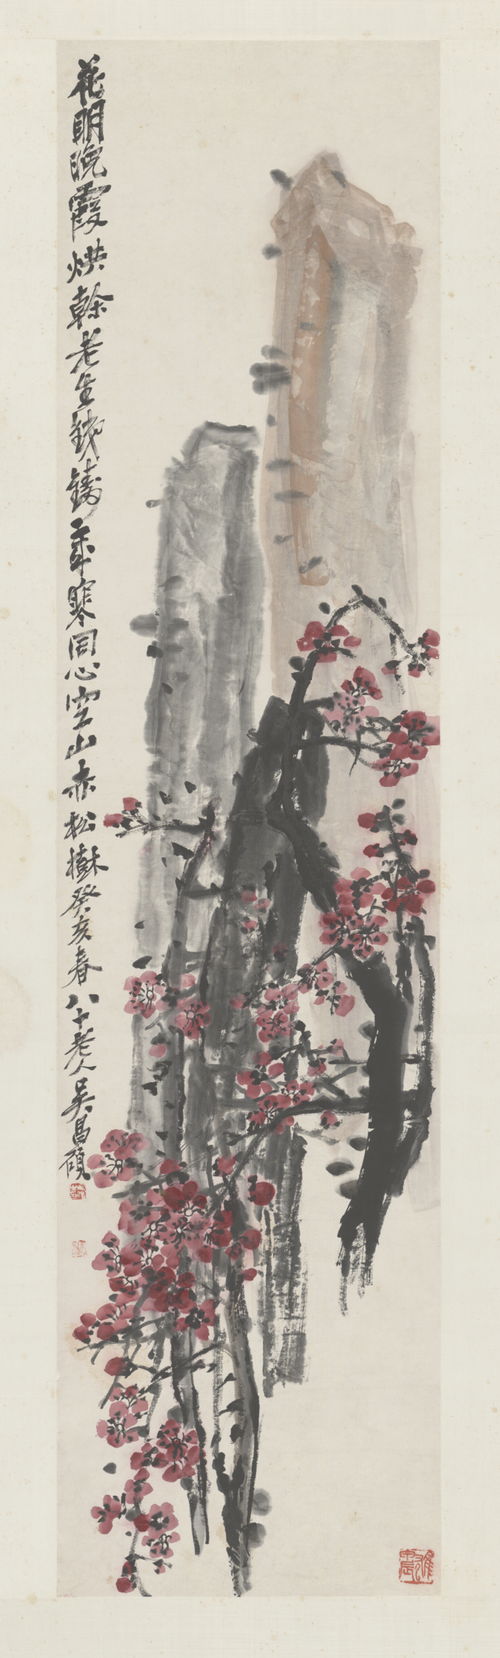 花明晚霞烘榦老生鉄鑄歲寒同心空山赤松樹癸亥春八十老人吳昌碩